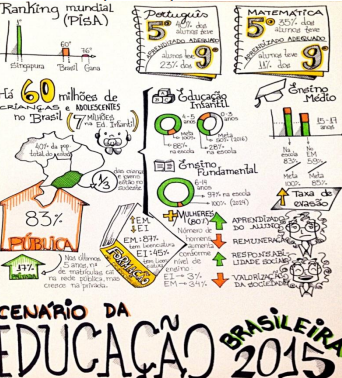 Ranking mundial
(PISA)
60°
76°
Singapura
Brasil
Gana
Português
5° 40% dos
alunos teve
APRENDIZADO ADEQUADO
alunos teve
23% dos
9°
MATEMÁTICA
5° 35% dos
alunos teve
APRENDIZADO ADEQUADO
alunos teve
11% dos
9°
Há 60 milhões de
CRIANÇAS e ADOLESCENTES
no Brasil
(7 MILHÕES
na Ed. Infantil)
40% da pop.
total do
1/3
das crianças
estão no
Educação
Infantil
4-5
anos
0-3
anos
Meta
100%
88%
na escola
Meta
50% (2016)
28% na
escola
Ensino
Fundamental
6-14
anos
97% na escola
100% (2024)
Ensino
Médio
15-17
anos
Na
escola
83%
No
EM
59%
Meta
100%
Meta
85%
Taxa de
evasão
83%
PÚBLICA
17%
PRIVADA
Nos últimos
5 anos, nº
de matrículas cai
na rede pública, mas
cresce na privada.
EM
EI
EM: 87%
tem Licenciatura
EI: 45%
FORMAÇÃO
+ MULHERES
(80%)
Número de
homens
aumenta
conforme
nível de
ensino
EI → 3%
EM → 34%
APRENDIZADO
DO ALUNO
REMUNERAÇÃO
RESPONSABI-
LIDADE SOCIAL
VALORIZAÇÃO
DA SOCIEDADE
CENÁRIO DA
EDUCAÇÃO
BRASILEIRA
2015